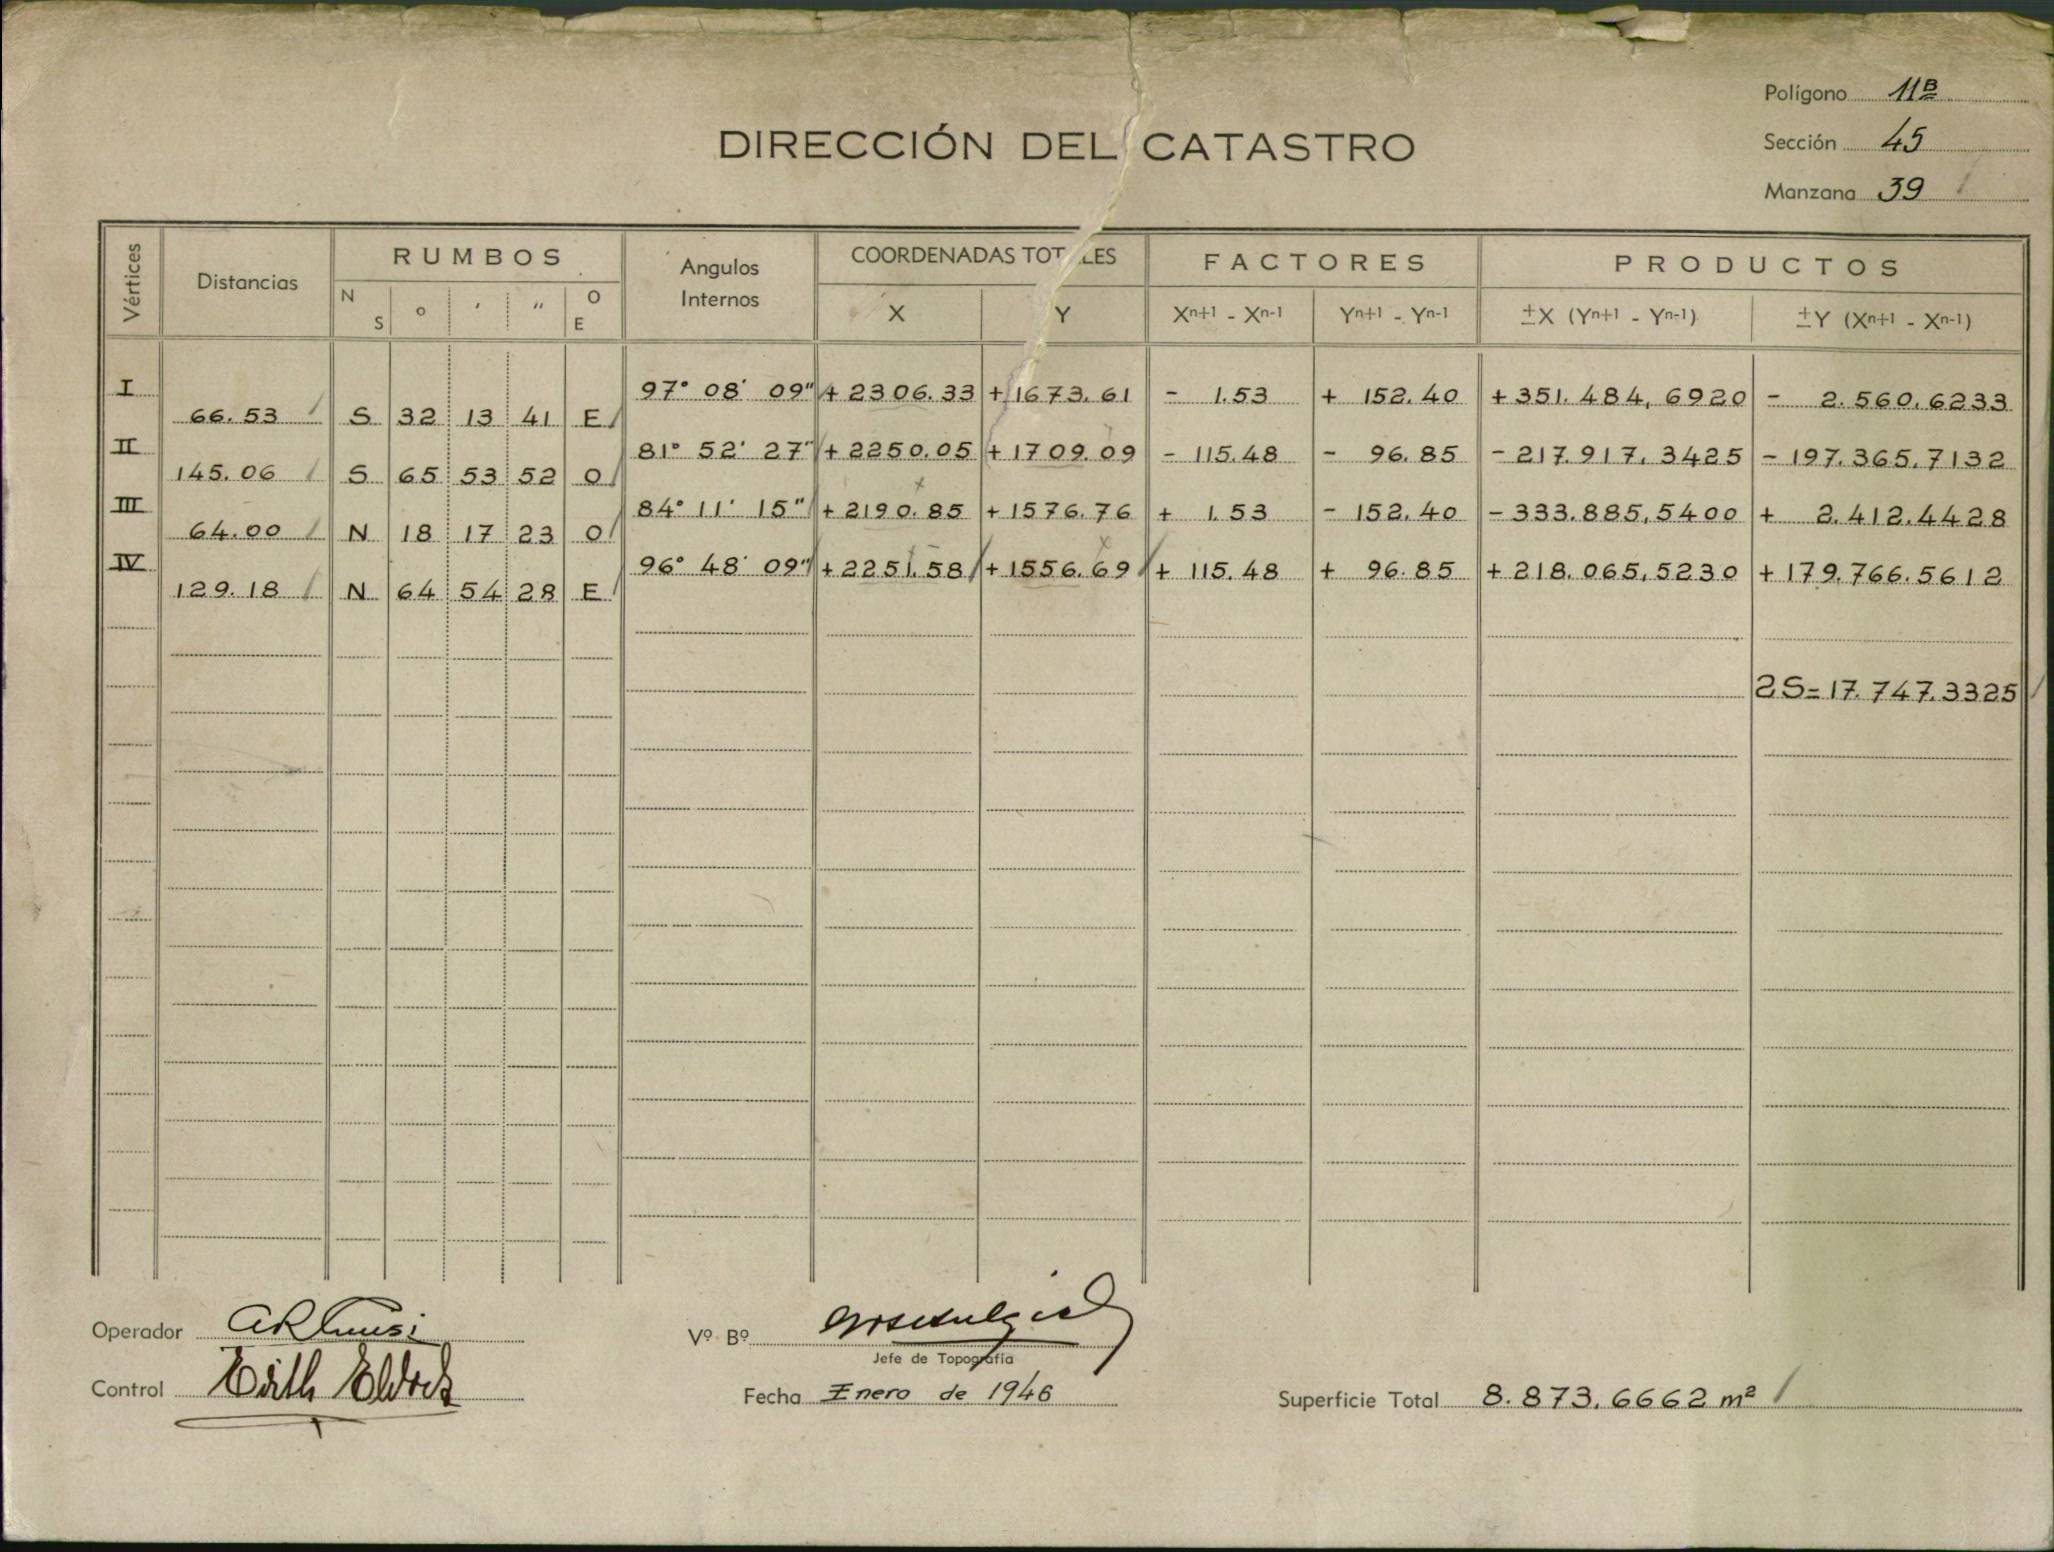 Polígono 11B
DIRECCIÓN DEL CATASTRO
Sección 45
Manzana 39
Vértices Distancias RUMBOS Angulos Internos COORDENADAS TOTALES FACTORES PRODUCTOS
N S o ' " O E X Y Xn+1 - Xn-1 Yn+1 - Yn-1 ±X (Yn+1 - Yn-1) ±Y (Xn+1 - Xn-1)
I 97° 08' 09" + 2306.33 + 1673.61 - 1.53 + 152.40 + 351.484,6920 - 2.560,6233
66.53 S 32 13 41 E
II 81° 52' 27" + 2250.05 + 1709.09 - 115.48 - 96.85 - 217.917,3425 - 197.365,7132
145.06 S 65 53 52 O
III 84° 11' 15" + 2190.85 + 1576.76 + 1.53 - 152.40 - 333.885,5400 + 2.412.4428
64.00 N 18 17 23 O
IV 96° 48' 09" + 2251.58 + 1556.69 + 115.48 + 96.85 + 218.065,5230 + 179.766.5612
129.18 N 64 54 28 E
2S = 17.747.3325
Operador
Vº Bº
Jefe de Topografía
Control Edith
Fecha Enero de 1946
Superficie Total 8.873,6662 m²